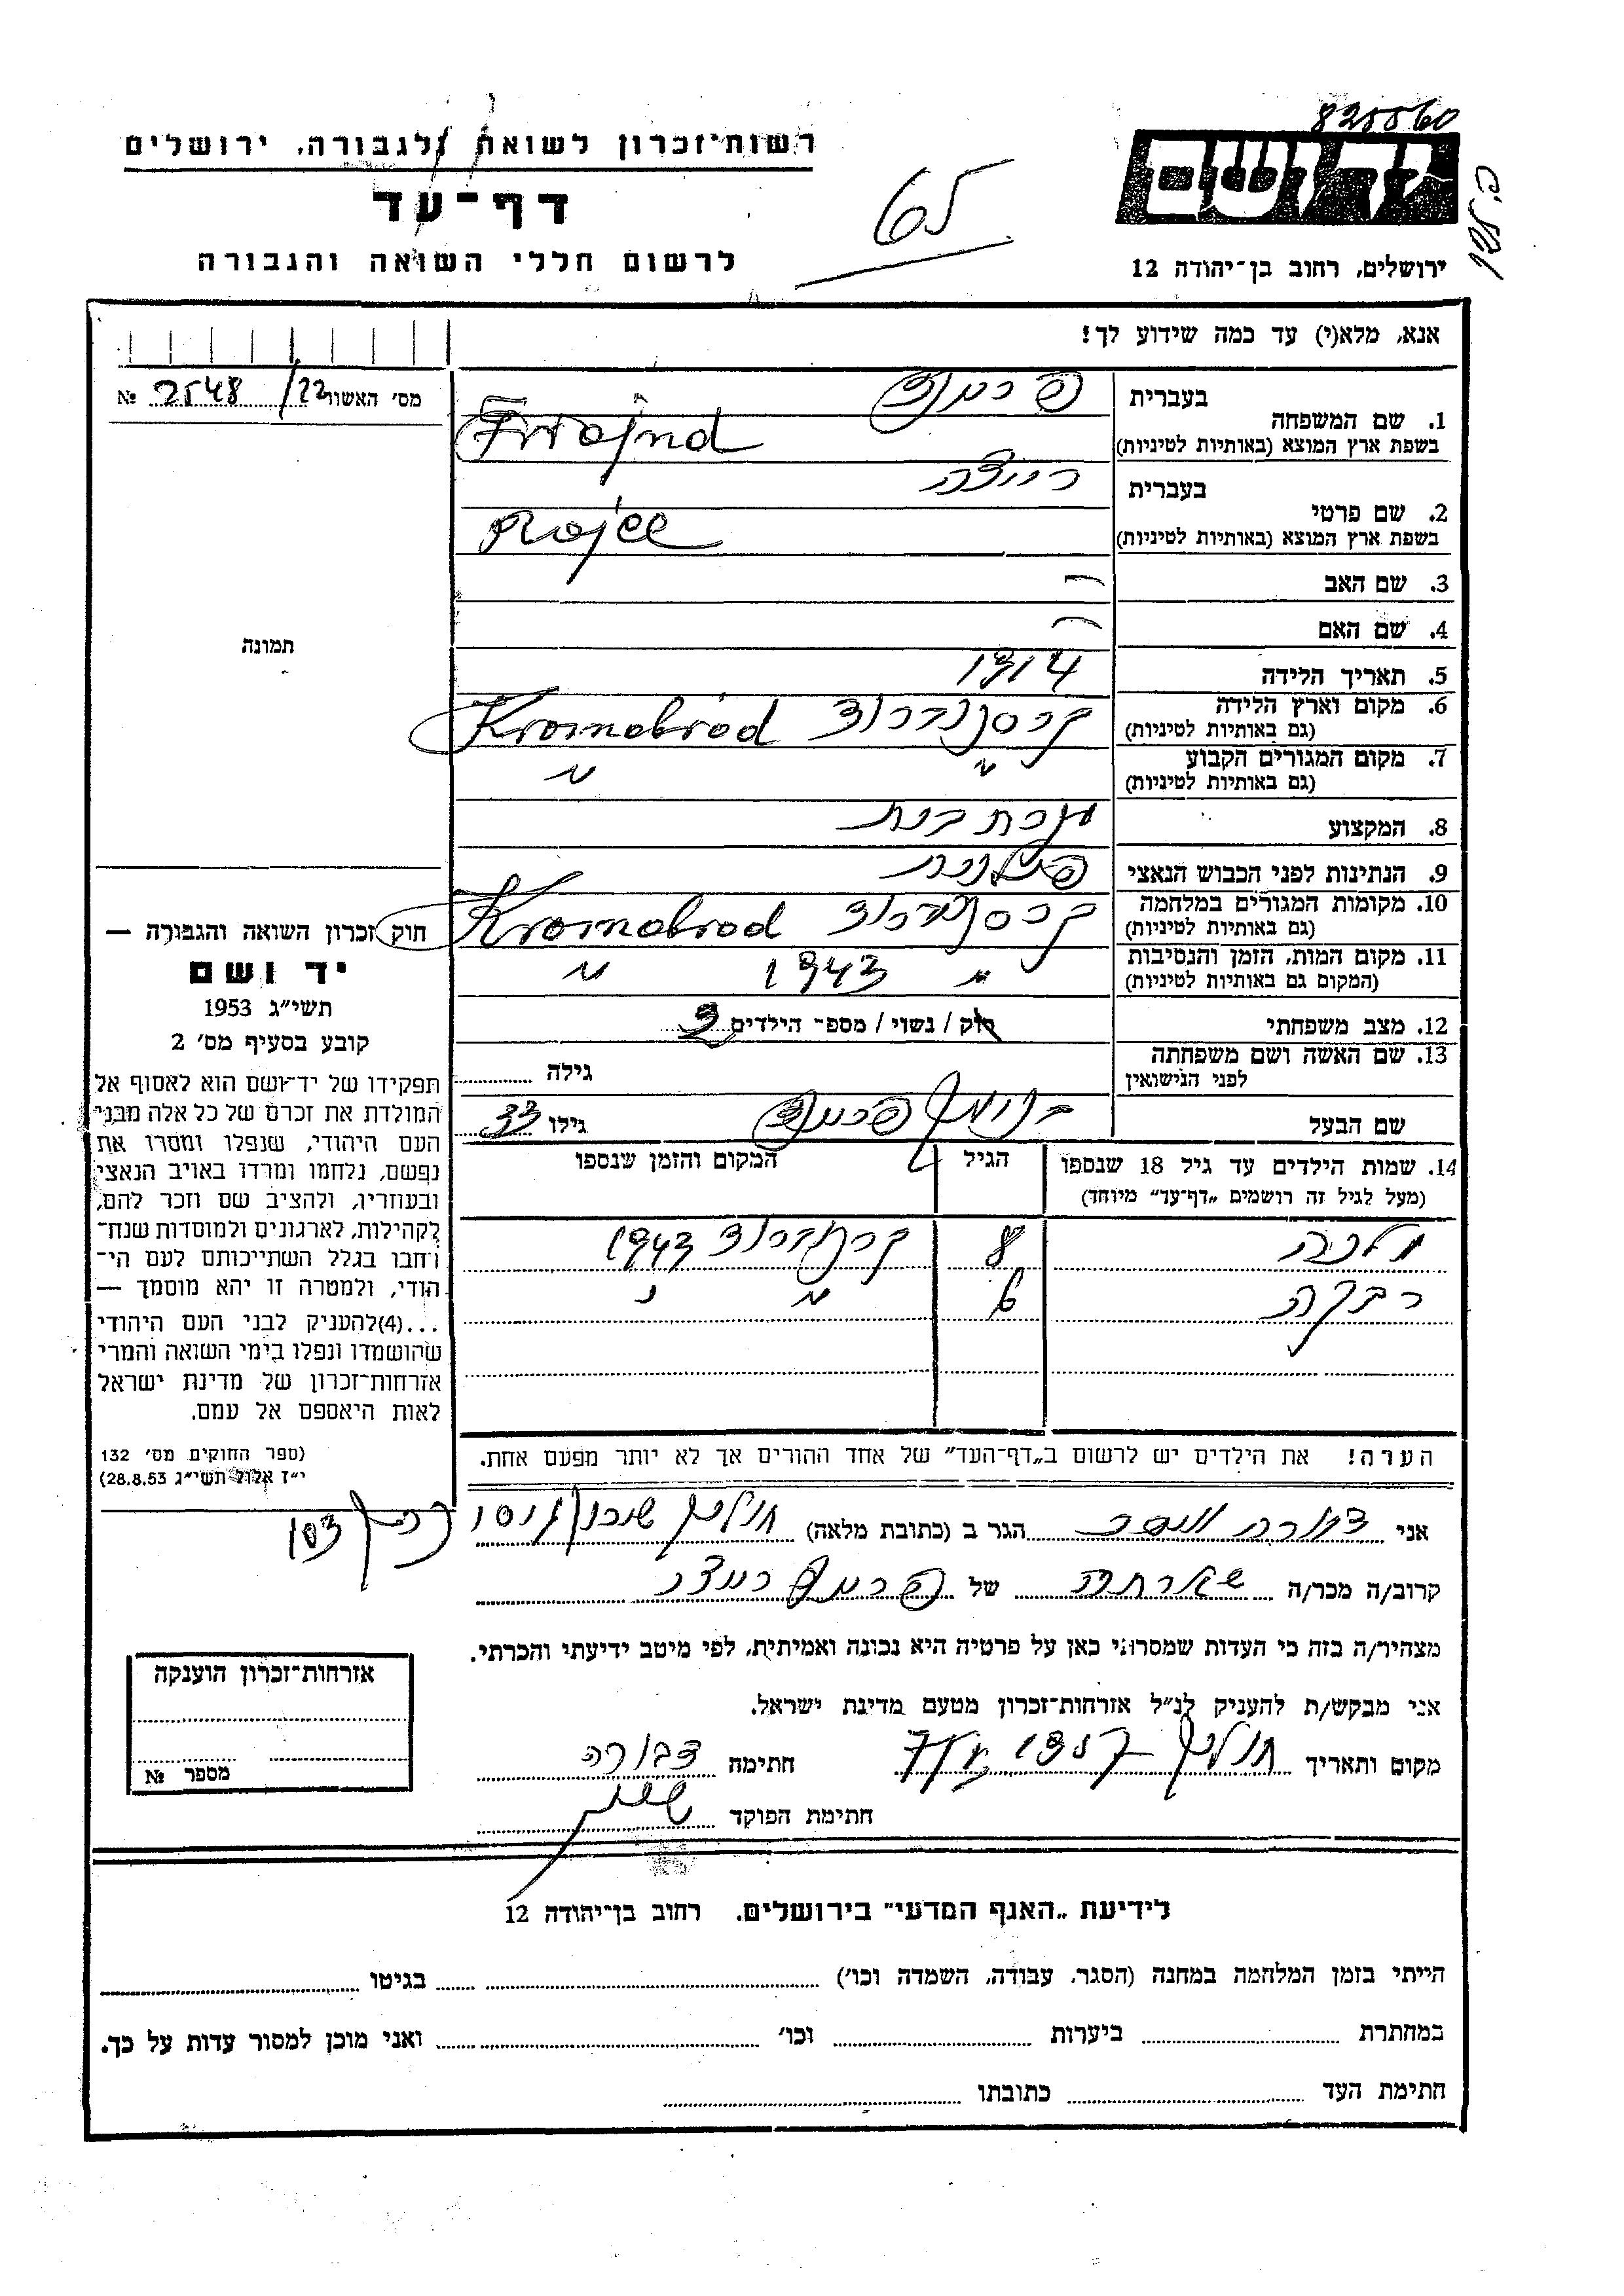 825560
רשות־זכרון לשואה ולגבורה, ירושלים
דף־עד
לרשום חללי השואה והגבורה
65
יד ושם
ירושלים, רחוב בן־יהודה 12
אנא, מלא(י) עד כמה שידוע לך!
מס' האשור 22/ 2548 №
תמונה
1. שם המשפחה
בעברית פרינד
בשפת ארץ המוצא (באותיות לטיניות) Frajnd
2. שם פרטי
בעברית רייצה
בשפת ארץ המוצא (באותיות לטיניות)
3. שם האב —
4. שם האם —
5. תאריך הלידה 1914
6. מקום וארץ הלידה
(גם באותיות לטיניות) Krasnobród
7. מקום המגורים הקבוע
(גם באותיות לטיניות) " "
8. המקצוע עקרת בית
9. הנתינות לפני הכבוש הנאצי פולנית
10. מקומות המגורים במלחמה
(גם באותיות לטיניות) Krasnobrod
11. מקום המות, הזמן והנסיבות
(המקום גם באותיות לטיניות) " 1943 "
12. מצב משפחתי רוק / נשוי / מספר הילדים 2
13. שם האשה ושם משפחתה
לפני הנישואין גילה
שם הבעל בנימין פרינד גילו 33
14. שמות הילדים עד גיל 18 שנספו הגיל המקום והזמן שנספו
(מעל לגיל זה רושמים „דף־עד" מיוחד)
מלכה 8 1943
רבקה 6 " "
הערה! את הילדים יש לרשום ב„דף־העד" של אחד ההורים אך לא יותר מפעם אחת.
חוק זכרון השואה והגבורה —
יד ושם
תשי"ג 1953
קובע בסעיף מס' 2
תפקידו של יד־ושם הוא לאסוף אל
המולדת את זכרם של כל אלה מבני
העם היהודי, שנפלו ומסרו את
נפשם, נלחמו ומרדו באויב הנאצי
ובעוזריו, ולהציב שם וזכר להם,
לקהילות, לארגונים ולמוסדות שנח־
רבו בגלל השתייכותם לעם הי־
הודי, ולמטרה זו יהא מוסמך —
...(4)להעניק לבני העם היהודי
שהושמדו ונפלו בימי השואה והמרי
אזרחות־זכרון של מדינת ישראל
לאות היאספם אל עמם.
(ספר החוקים מס' 132
י"ז אלול תשי"ג 28.8.53)
אני דבורה הגר ב (כתובת מלאה) חולון שיכון 103
קרוב/ה מכר/ה של פרינד רייצה
מצהיר/ה בזה כי העדות שמסרתי כאן על פרטיה היא נכונה ואמיתית, לפי מיטב ידיעתי והכרתי.
אני מבקש/ת להעניק לנ"ל אזרחות־זכרון מטעם מדינת ישראל.
מקום ותאריך חולון חתימה דבורה
חתימת הפוקד
אזרחות־זכרון הוענקה
מספר №
לידיעת „האגף המדעי" בירושלים. רחוב בן־יהודה 12
הייתי בזמן המלחמה במחנה (הסגר, עבודה, השמדה וכו') בגיטו
במחתרת ביערות וכו' ואני מוכן למסור עדות על כך.
חתימת העד כתובתו